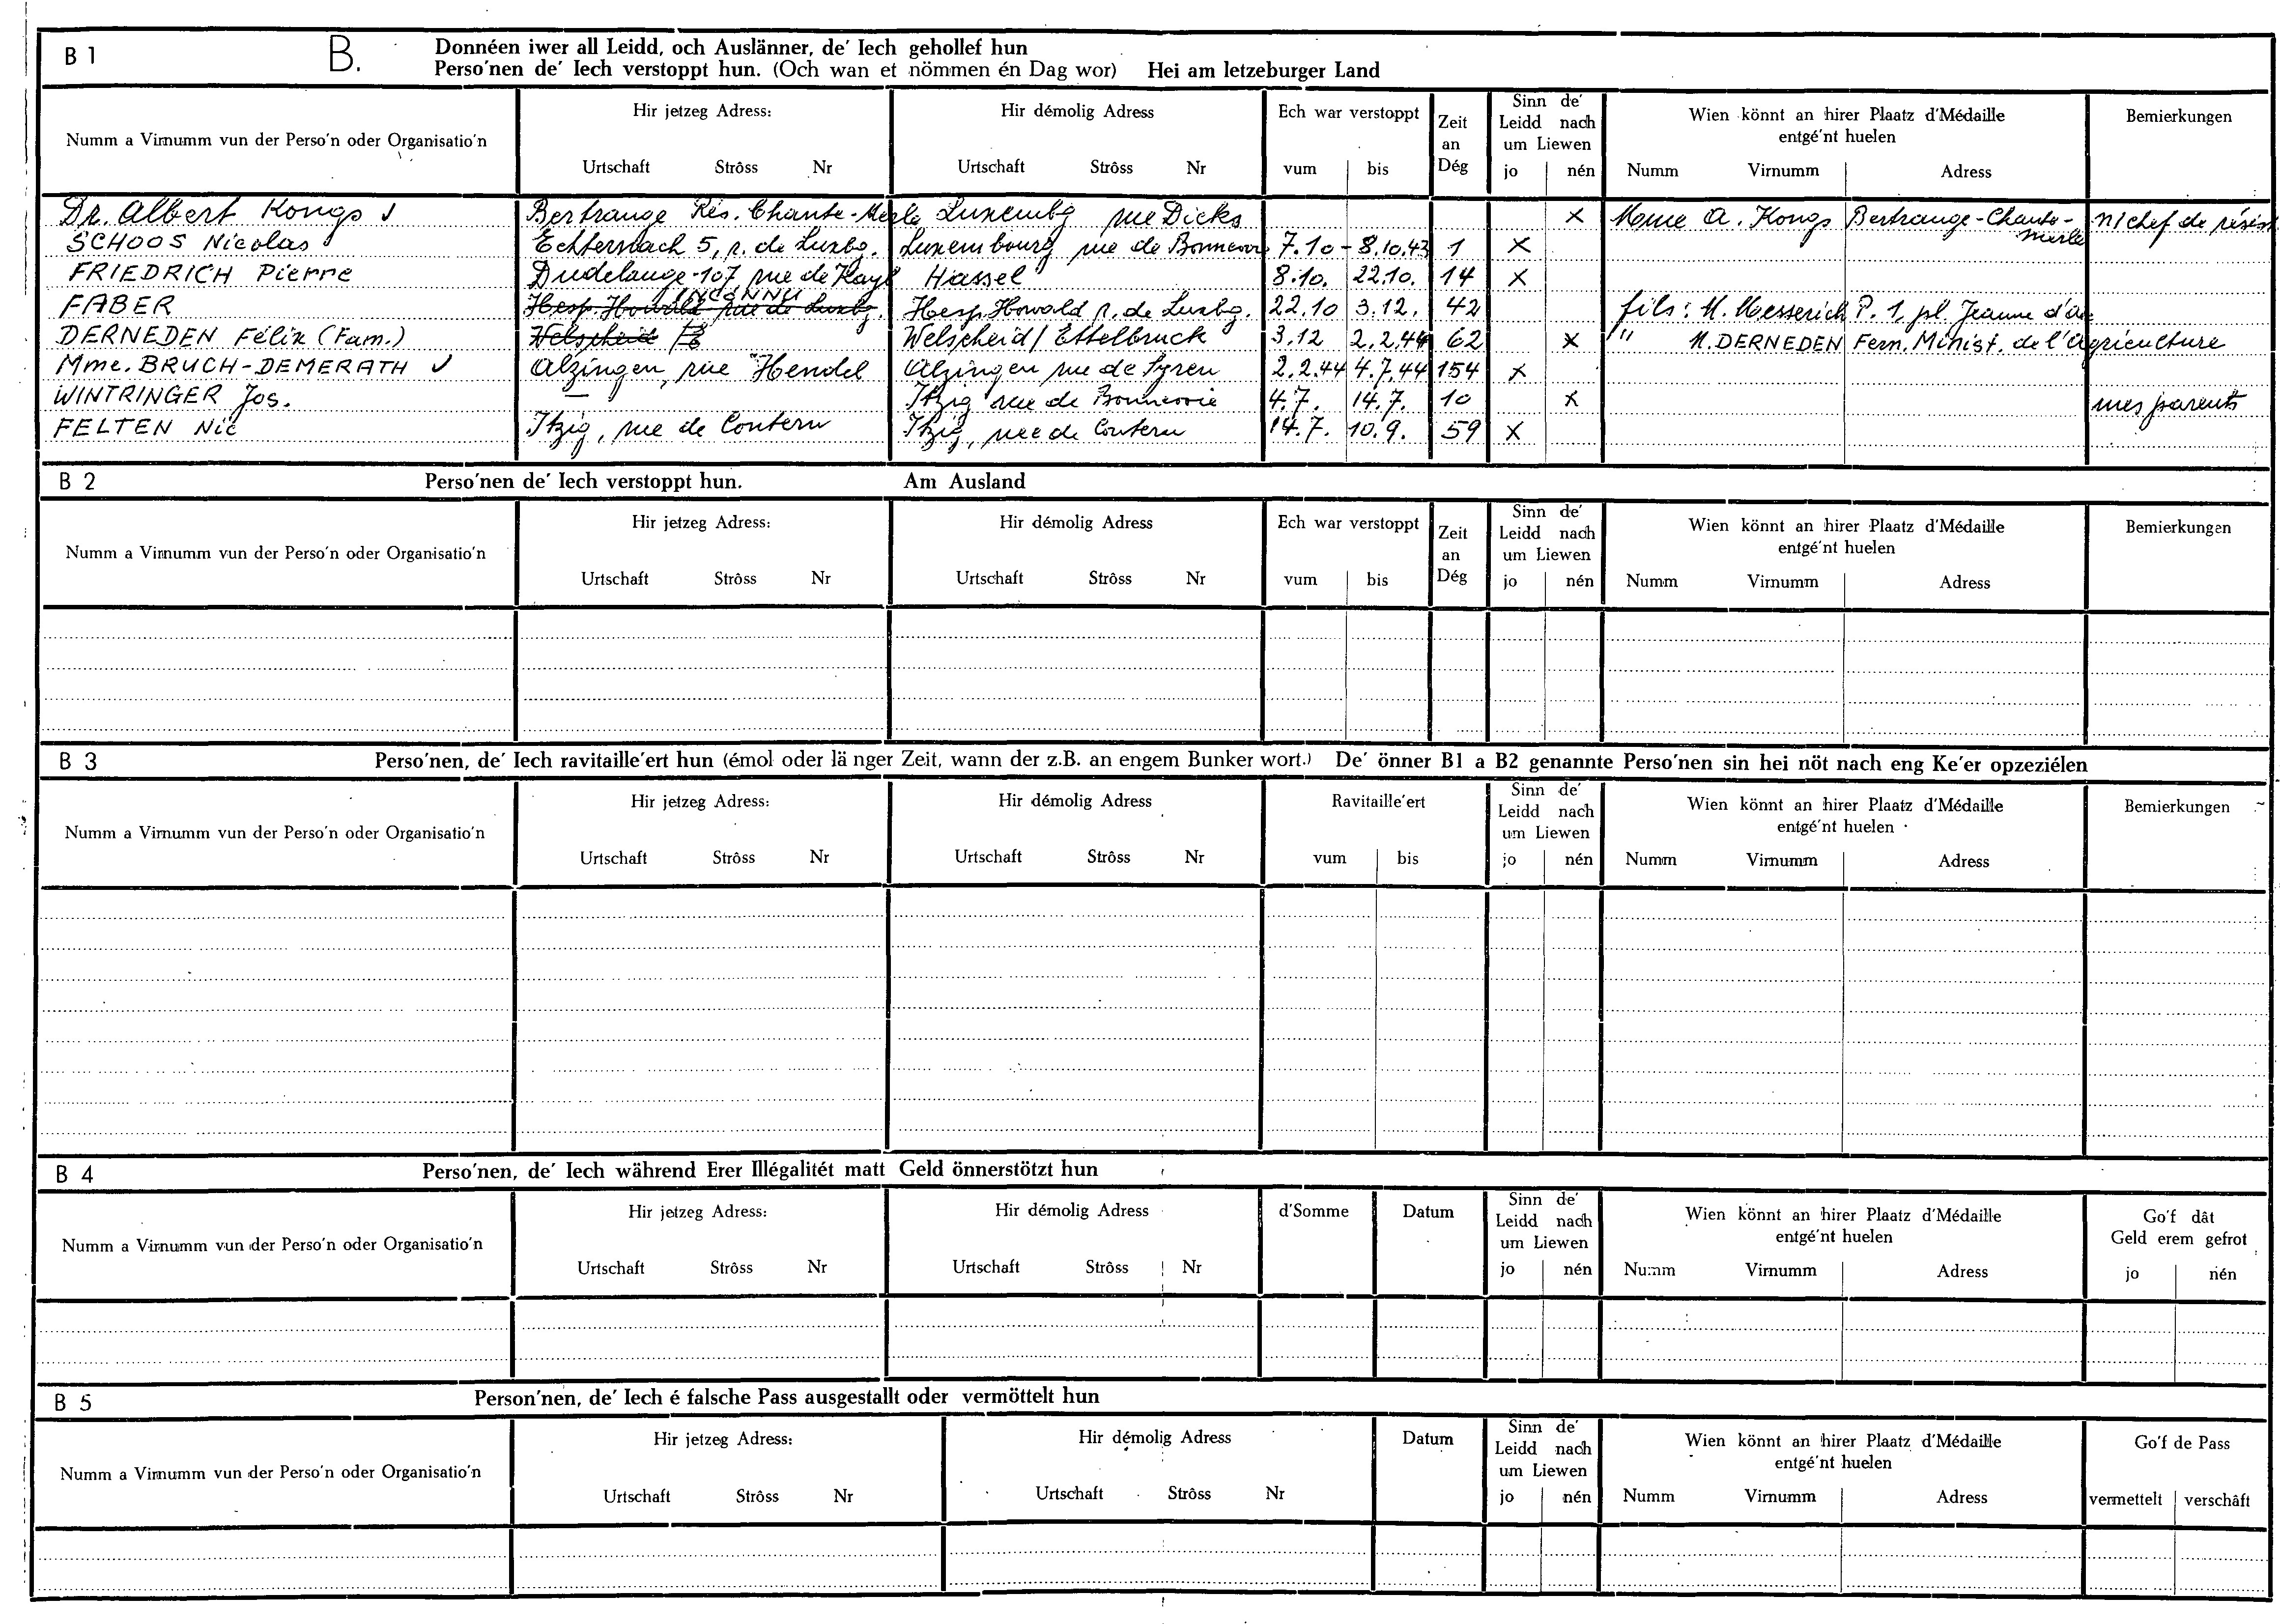 B 1 B. Donnéen iwer all Leidd, och Auslänner, de' Iech gehollef hun
Perso'nen de' Iech verstoppt hun. (Och wan et nömmen én Dag wor) Hei am letzeburger Land
Numm a Virnumm vun der Perso'n oder Organisatio'n
Hir jetzeg Adress:
Urtschaft Strôss Nr
Hir démolig Adress
Urtschaft Strôss Nr
Ech war verstoppt
vum bis
Zeit
an
Dég
Sinn de'
Leidd nach
um Liewen
jo nén
Wien könnt an hirer Plaatz d'Médaille
entgé'nt huelen
Numm Virnumm Adress
Bemierkungen
Dr. Albert Kongs Bertrange Rés. Chante-Merle Luxembg rue Dicks x Mme A. Kongs Bertrange-Chante-merle chef de résist
SCHOOS Nicolas Echternach 5, r. de Luxbg. Luxembourg rue de Bonnevoie 7.10 - 8.10.43 1 x
FRIEDRICH Pierre Dudelange 107 rue de Kayl Hassel 8.10. 22.10. 14 x
INCONNU
FABER Hesp. Howald rue de Luxbg. Hesp. Howald r. de Luxbg. 22.10 3.12. 42 fils: M. Messerich P. 1, pl. Jeanne d'arc
DERNEDEN Félix (Fam.) Welscheid Welscheid/Ettelbruck 3.12 2.2.44 62 x " M. DERNEDEN Fern. Minist. de l'Agriculture
Mme. BRUCH-DEMERATH Alzingen, rue Hendel Alzingen rue de Syren 2.2.44 4.7.44 154 x
WINTRINGER Jos. — Itzig rue de Bonnevoie 4.7. 14.7. 10 x mes parents
FELTEN Nic Itzig, rue de Contern Itzig, rue de Contern 14.7. 10.9. 59 x
B 2 Perso'nen de' Iech verstoppt hun. Am Ausland
Numm a Virnumm vun der Perso'n oder Organisatio'n
Hir jetzeg Adress:
Urtschaft Strôss Nr
Hir démolig Adress
Urtschaft Strôss Nr
Ech war verstoppt
vum bis
Zeit
an
Dég
Sinn de'
Leidd nach
um Liewen
jo nén
Wien könnt an hirer Plaatz d'Médaille
entgé'nt huelen
Numm Virnumm Adress
Bemierkungen
B 3 Perso'nen, de' Iech ravitaille'ert hun (émol oder länger Zeit, wann der z.B. an engem Bunker wort.) De' önner B1 a B2 genannte Perso'nen sin hei nöt nach eng Ke'er opzeziélen
Numm a Virnumm vun der Perso'n oder Organisatio'n
Hir jetzeg Adress:
Urtschaft Strôss Nr
Hir démolig Adress
Urtschaft Strôss Nr
Ravitaille'ert
vum bis
Sinn de'
Leidd nach
um Liewen
jo nén
Wien könnt an hirer Plaatz d'Médaille
entgé'nt huelen
Numm Virnumm Adress
Bemierkungen
B 4 Perso'nen, de' Iech während Erer Illégalitét matt Geld önnerstötzt hun
Numm a Virnumm vun der Perso'n oder Organisatio'n
Hir jetzeg Adress:
Urtschaft Strôss Nr
Hir démolig Adress
Urtschaft Strôss Nr
d'Somme
Datum
Sinn de'
Leidd nach
um Liewen
jo nén
Wien könnt an hirer Plaatz d'Médaille
entgé'nt huelen
Numm Virnumm Adress
Go'f dât
Geld erem gefrot
jo nén
B 5 Person'nen, de' Iech é falsche Pass ausgestallt oder vermöttelt hun
Numm a Virnumm vun der Perso'n oder Organisatio'n
Hir jetzeg Adress:
Urtschaft Strôss Nr
Hir démolig Adress
Urtschaft Strôss Nr
Datum
Sinn de'
Leidd nach
um Liewen
jo nén
Wien könnt an hirer Plaatz d'Médaille
entgé'nt huelen
Numm Virnumm Adress
Go'f de Pass
vermettelt verschâft